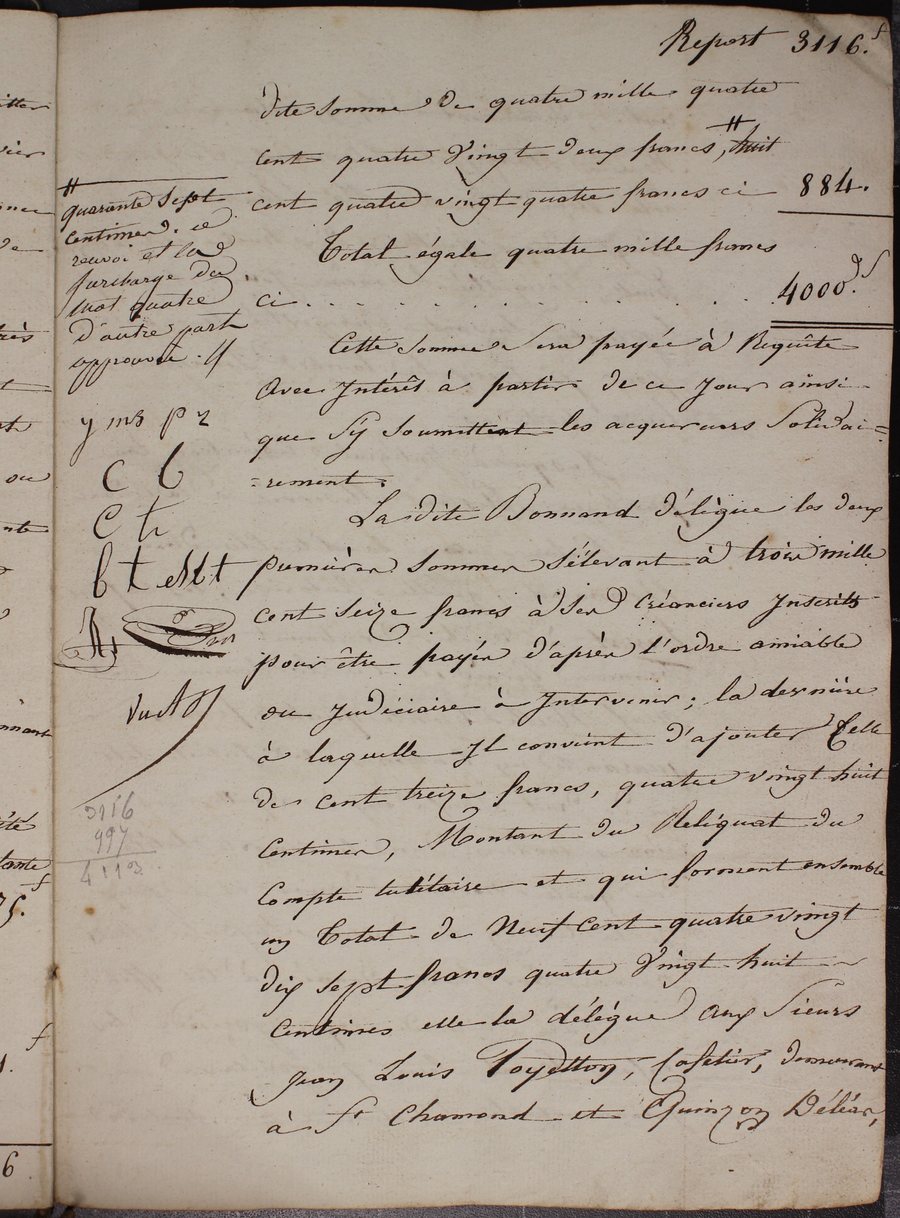 Report 3116.f
dite somme de quatre mille quatre
cent quatre vingt deux francs, # huit
cent quatre vingt quatre francs ci 884.
Total égale quatre mille francs
ci . . . . . . . . . . . 4000.f
Cette somme sera payée à Requête
avec Intérêt à partir de ce jour ainsi
que s'y soumettent les acquereurs solidai=
=rement.
La dite Bonnand délègue les deux
premières sommes s'élevant à trois mille
cent seize francs à ses créanciers Inscrits
pour être payés d'après l'ordre amiable
ou Judiciaire à Intervenir; la dernière
à laquelle Il convient d'ajouter Celle
de cent treize francs, quatre vingt huit
centimes, Montant du Reliquat du
Compte tutélaire et qui forment ensemble
un Total de Neuf cent quatre vingt
dix sept francs quatre vingt huit
centimes elle la délègue aux Sieurs
Jean Louis Poyetton, Cafetier, demeurant
à St Chamond et
#
quarante sept
centimes. ce
renvoi et la
surcharge du
mot quatre
d'autre part
approuvée. //
C b
C t
3116
997
4113